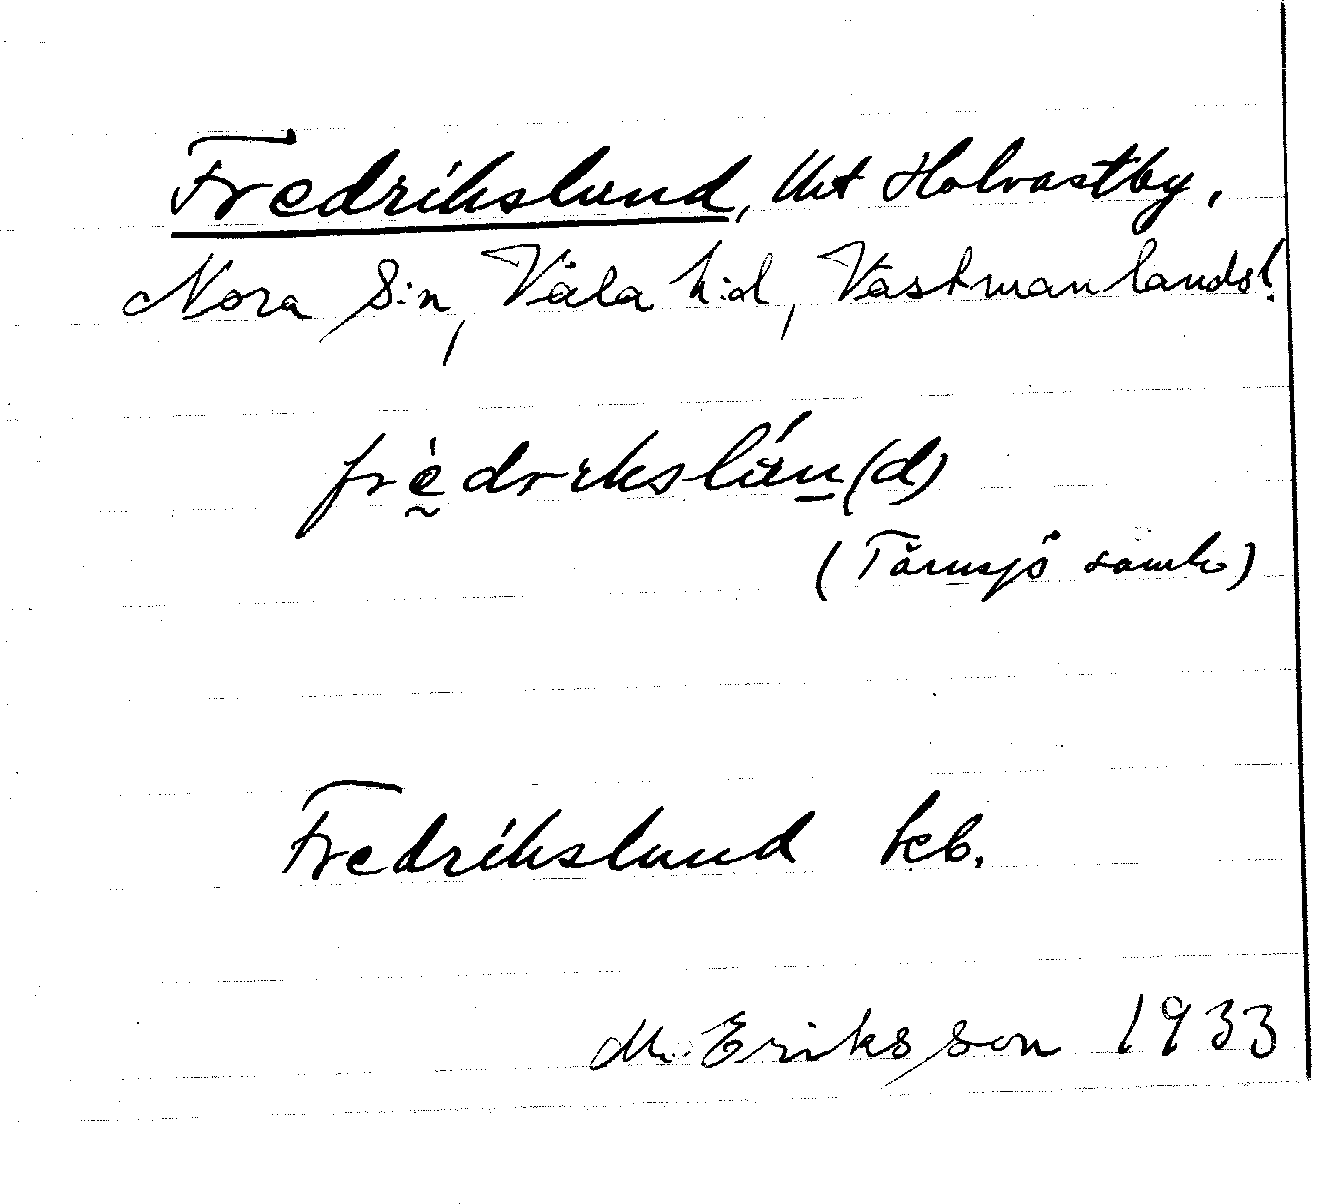 Fredrikslund, Uut Holvastby,
Nora s:n, Våla h:d, Västmanlands l.
frḛ̀drikslún(d)
(Tärnsjö samh)
Fredrikslund kb.
M. Eriksson 1933